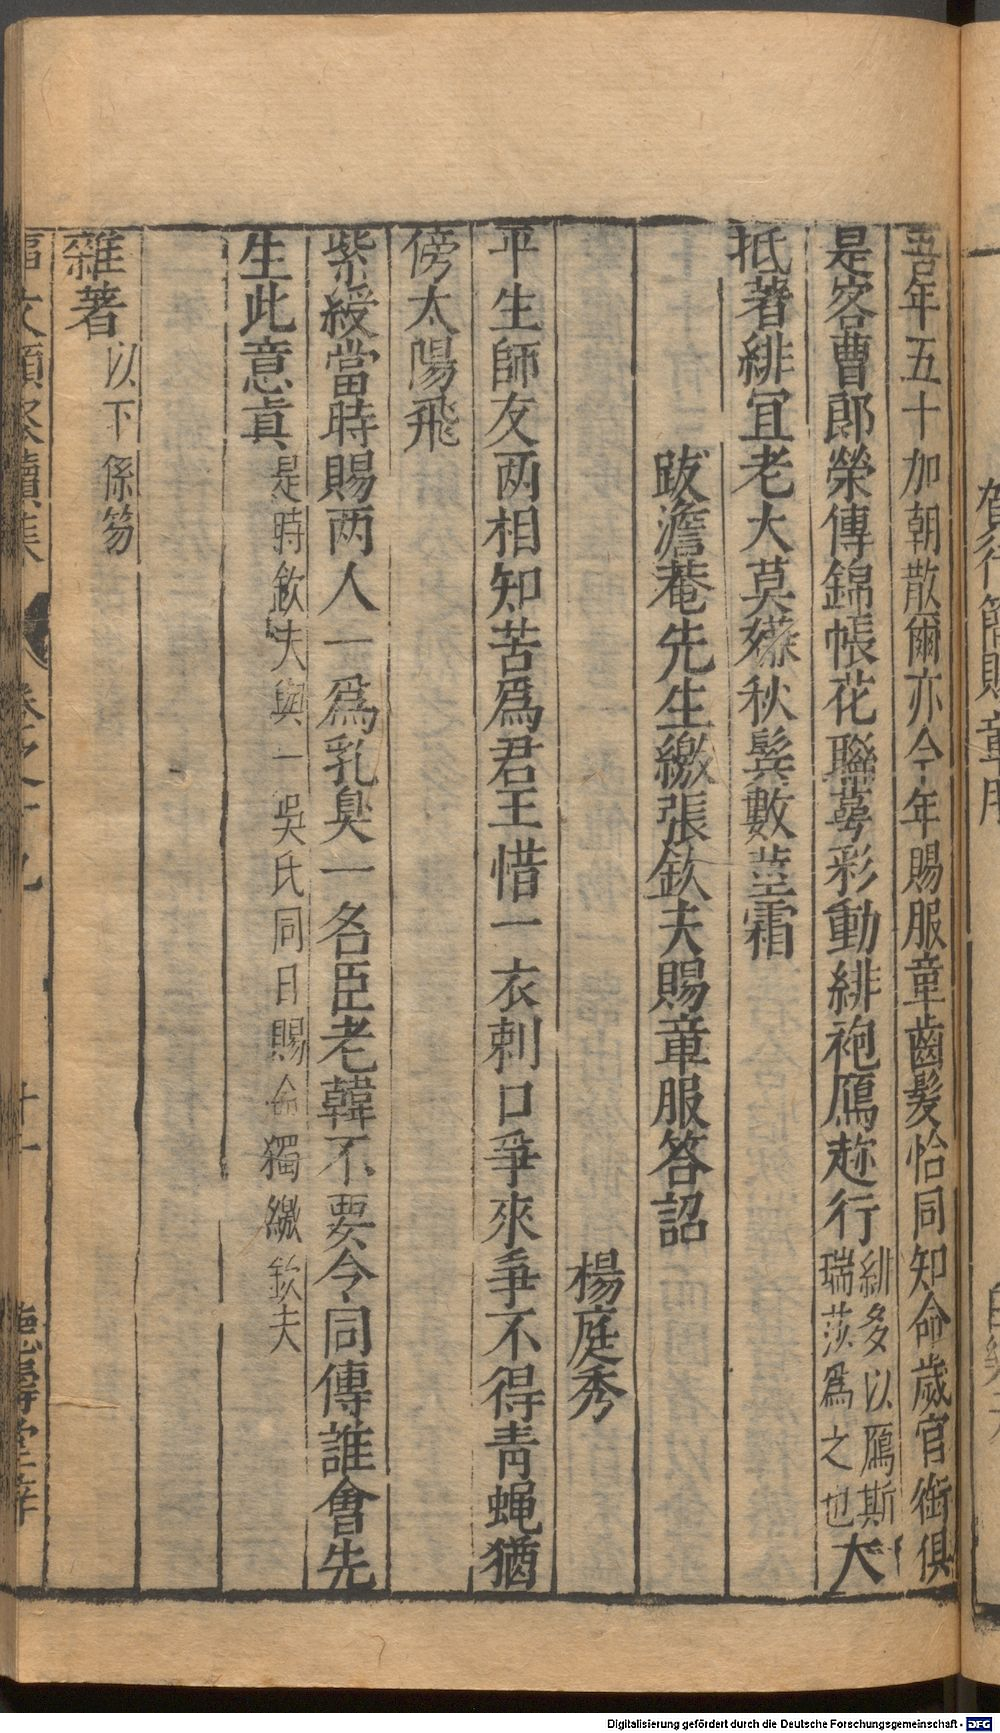 吾年五十加朝散爾亦今年賜服章齒髮恰同知命歲官銜俱
是客曹郎榮傳錦帳花聯萼彩動緋袍鴈趂行緋多以鴈斯瑞莎為之也大
抵著緋宜老大莫嫌秋鬂數莖霜
跋澹菴先生繳張欽夫賜章服答詔
楊庭秀
平生師友两相知苦爲君王惜一衣刺口爭來爭不得青蝇猶
傍太陽飛
紫綬當時賜两人一爲乳臭一名臣老韓不要令同傳誰會先
生此意眞是時欽夫與一吳氏同日賜命獨繳欽夫
雜著以下係笏
卷之十九
十一
德壽堂梓
Digitalisierung gefördert durch die Deutsche Forschungsgemeinschaft - DFG